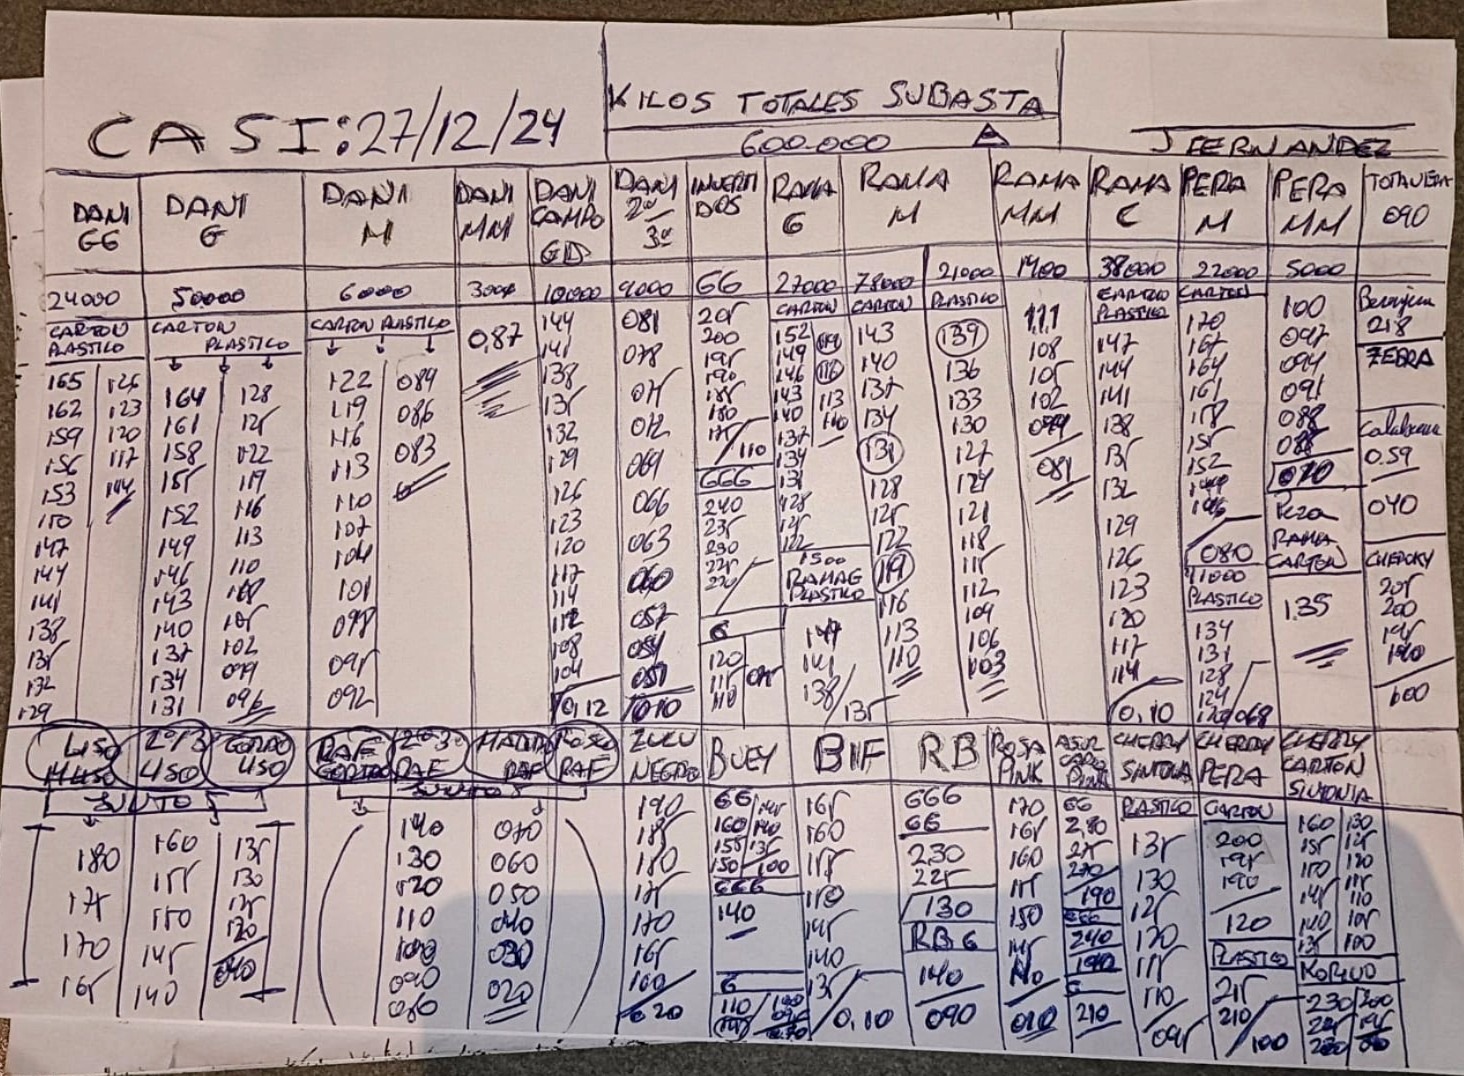 CASI: 27/12/24
KILOS TOTALES SUBASTA
600.000
J FERNANDEZ
DANI GG
DANI G
DANI M
DANI MM
DANI CAMPO GD
DANI 2ª 3ª
INVERTIDOS
RAMA G
RAMA M
RAMA MM
RAMA C
PERA M
PERA MM
090
24000
50000
6000
3000
10000
9000
GG
27000
78000
21000
1400
38000
22000
5000
CARTON PLASTICO
CARTON PLASTICO
CARTON PLASTICO
0,87
CARTON
CARTON
PLASTICO
CARTON PLASTICO
CARTON
165 126
162 123
159 120
156 117
153 114
150
147
144
141
138
135
132
129
164 128
161 125
158 122
155 119
152 116
149 113
146 110
143 108
140 105
137 102
134 099
131 096
122 089
119 086
116 083
113
110
107
104
101
098
095
092
144
141
138
135
132
129
126
123
120
117
114
112
108
104
0,12
081
078
075
072
069
066
063
060
057
054
051
010
205
200
195
190
185
180
175
110
GGG
240
235
230
225
220
G
120
115
110
152 119
149 116
146
143 113
140 110
137
134
131
128
125
122
1500
RAMA G
PLASTICO
147
141
138
135
143
140
137
134
131
128
125
122
119
116
113
110
139
136
133
130
127
124
121
118
115
112
109
106
103
111
108
105
102
099
081
147
144
141
138
135
132
129
126
123
120
117
114
0,10
170
167
164
161
158
155
152
149
146
080
11000
PLASTICO
134
131
128
124
120 068
100
097
094
091
088
085
070
RAMA
CARTON
135
Berenjena
218
ZEBRA
Calabacin
0.59
040
CHERRY
205
200
195
190
100
LISO
2º/3 LISO
GORDO LISO
RAF GORDO
2º 3º RAF
RAF
RAF
ZULU NEGRO
BUEY
BIF
RB
ROSA PINK
CHERRY SINTONIA
CHERRY PERA
CHERRY CARTON SINTONIA
180
175
170
165
160
155
150
145
140
135
130
125
120
040
140
130
120
110
100
090
080
070
060
050
040
030
020
190
185
180
175
170
165
160
020
GG 145
160 140
155 135
150 100
GGG
140
G
110
165
160
155
150
145
140
135
0,10
GGG
GG
230
225
130
RB G
140
090
170
165
160
155
150
145
140
010
GG
280
275
270
190
GGG
240
190
G
210
PLASTICO
135
130
125
120
115
110
095
CARTON
200
195
190
120
PLASTICO
215
210
100
160 130
155 125
150 120
145 115
140 110
135 105
100
230 200
225 195